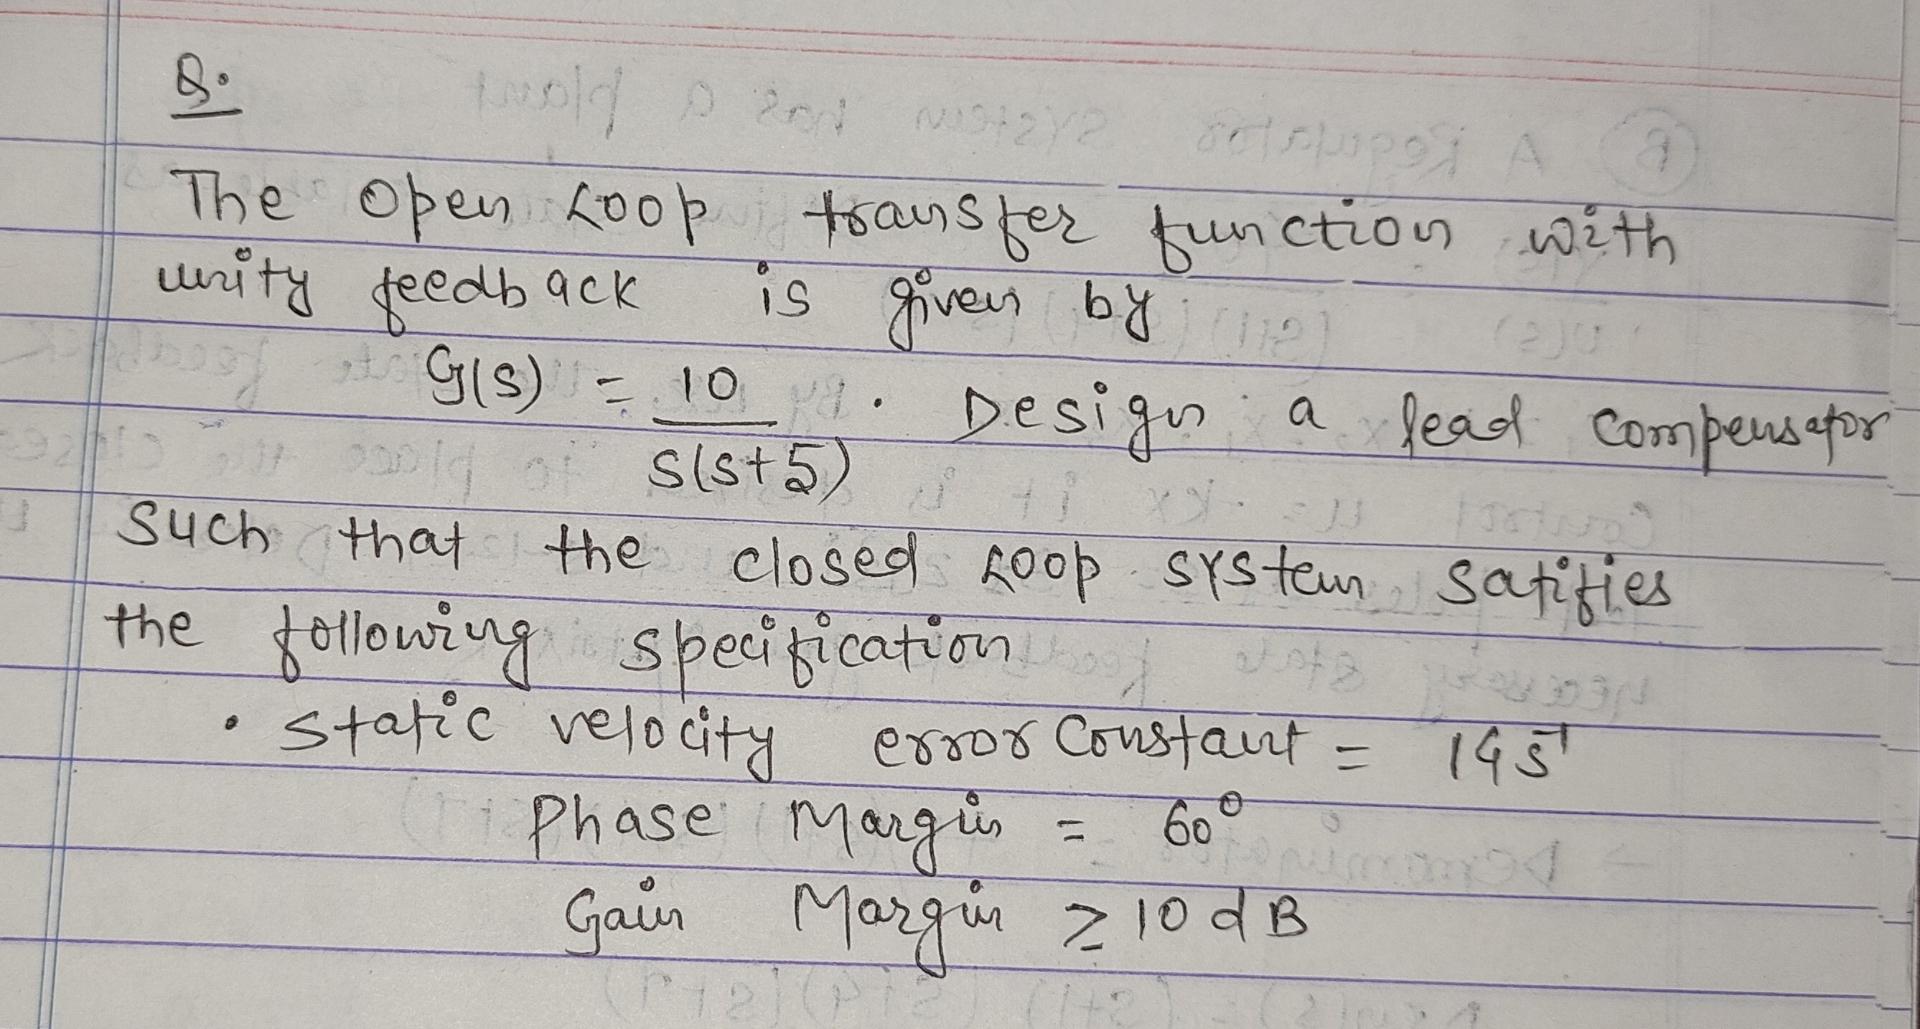 Q.
The Open Loop transfer function with
unity feedback is given by
G(s) = 10 . Design a lead compensator
s(s+5)
Such that the closed loop system satifies
the following specification
• static velocity error constant = 14 s⁻¹
Phase Margin = 60°
Gain Margin ≥ 10 dB